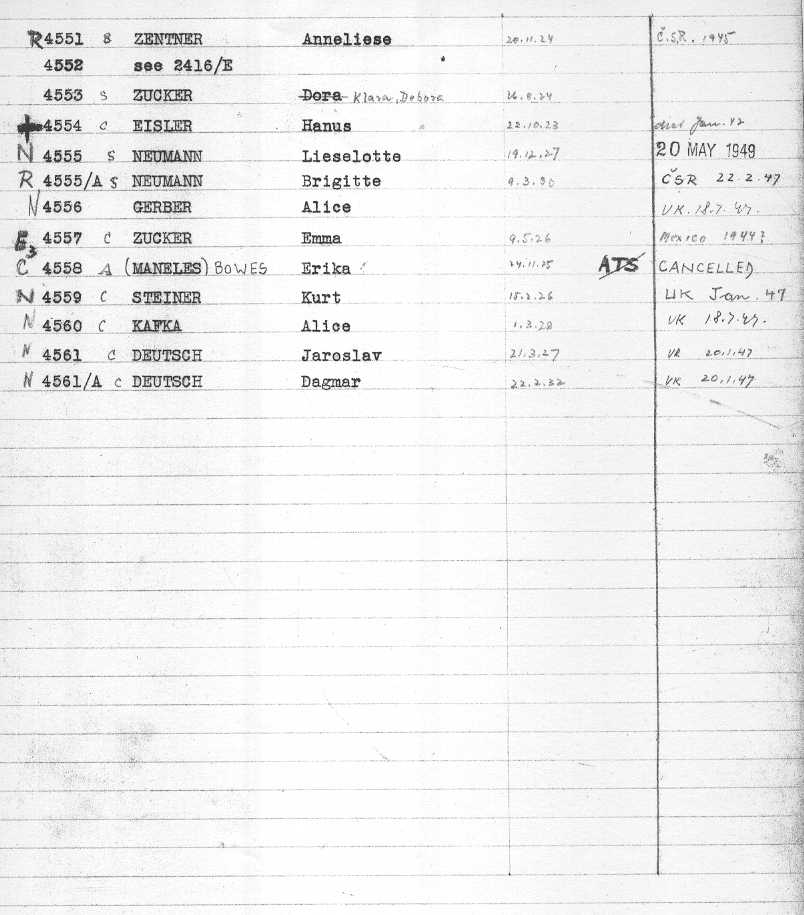 R 4551 S ZENTNER Anneliese 20.11.24 Č.S.R. 1945
4552 see 2416/E
4553 S ZUCKER Dora Klara, Debora 26.8.24
+ 4554 C EISLER Hanus 22.10.23 died Jan. 42
N 4555 S NEUMANN Lieselotte 19.12.27 20 MAY 1949
R 4555/A S NEUMANN Brigitte 9.3.30 ČSR 22.2.47
N 4556 GERBER Alice UK. 18.7.47.
E3 4557 C ZUCKER Emma 9.5.26 Mexico 1944?
C 4558 A (MANELES) BOWES Erika 24.11.25 ATS CANCELLED
N 4559 C STEINER Kurt 15.2.26 UK Jan. 47
N 4560 C KAFKA Alice 1.3.28 UK 18.7.47.
N 4561 C DEUTSCH Jaroslav 21.3.27 UK 20.1.47
N 4561/A C DEUTSCH Dagmar 22.2.32 UK 20.1.47